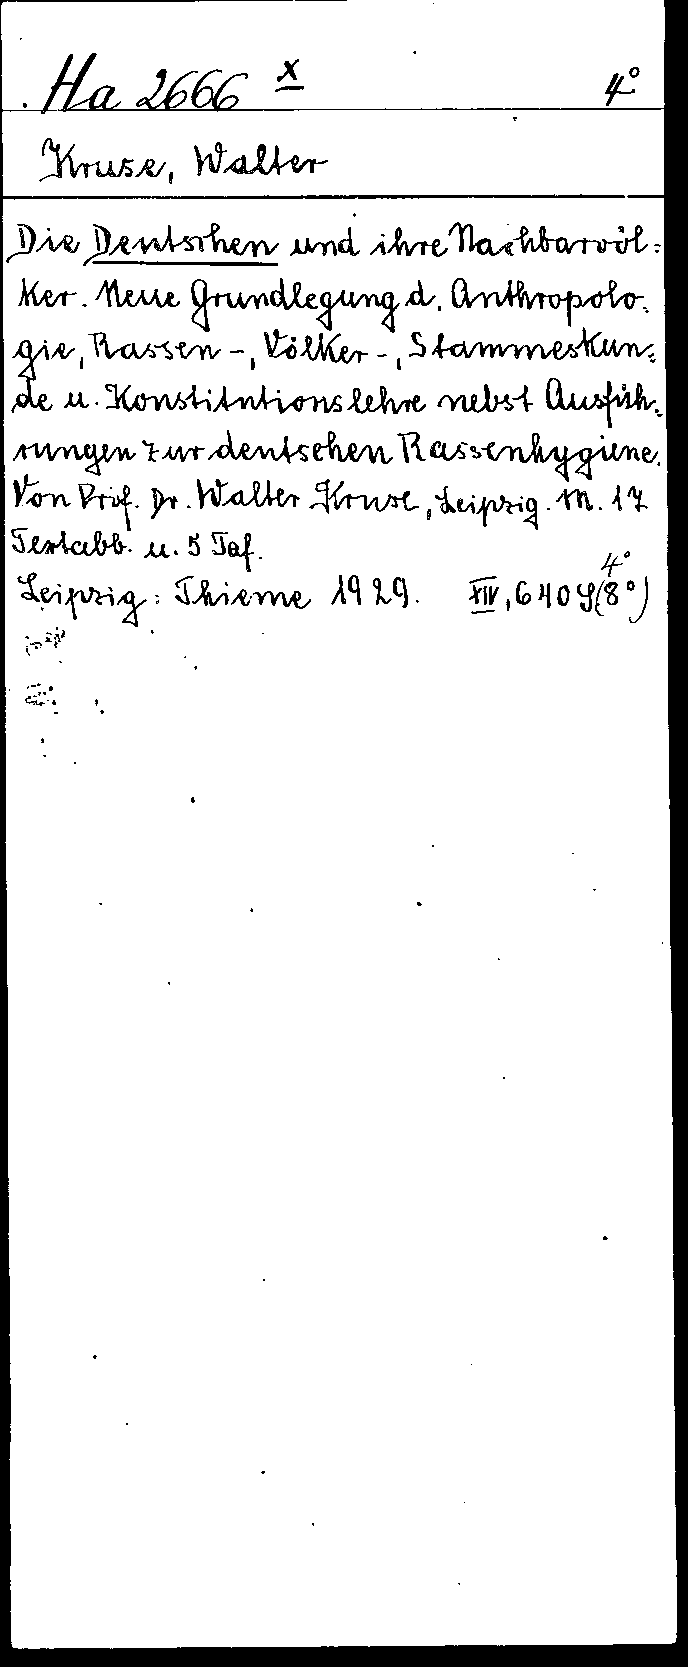 Ha 2666 x 4°
Kruse, Walter
Die Deutschen und ihre Nachbarvöl=
ker. Neue Grundlegung d. Anthropolo=
gie, Rassen-, Völker-, Stammeskun=
de u. Konstitutionslehre nebst Ausfüh=
rungen zur deutschen Rassenhygiene.
Von Prof. Dr. Walter Kruse, Leipzig. M. 17
Textabb. u. 5 Taf.
4°
Leipzig: Thieme 1929. XIV, 640 S. (8°)